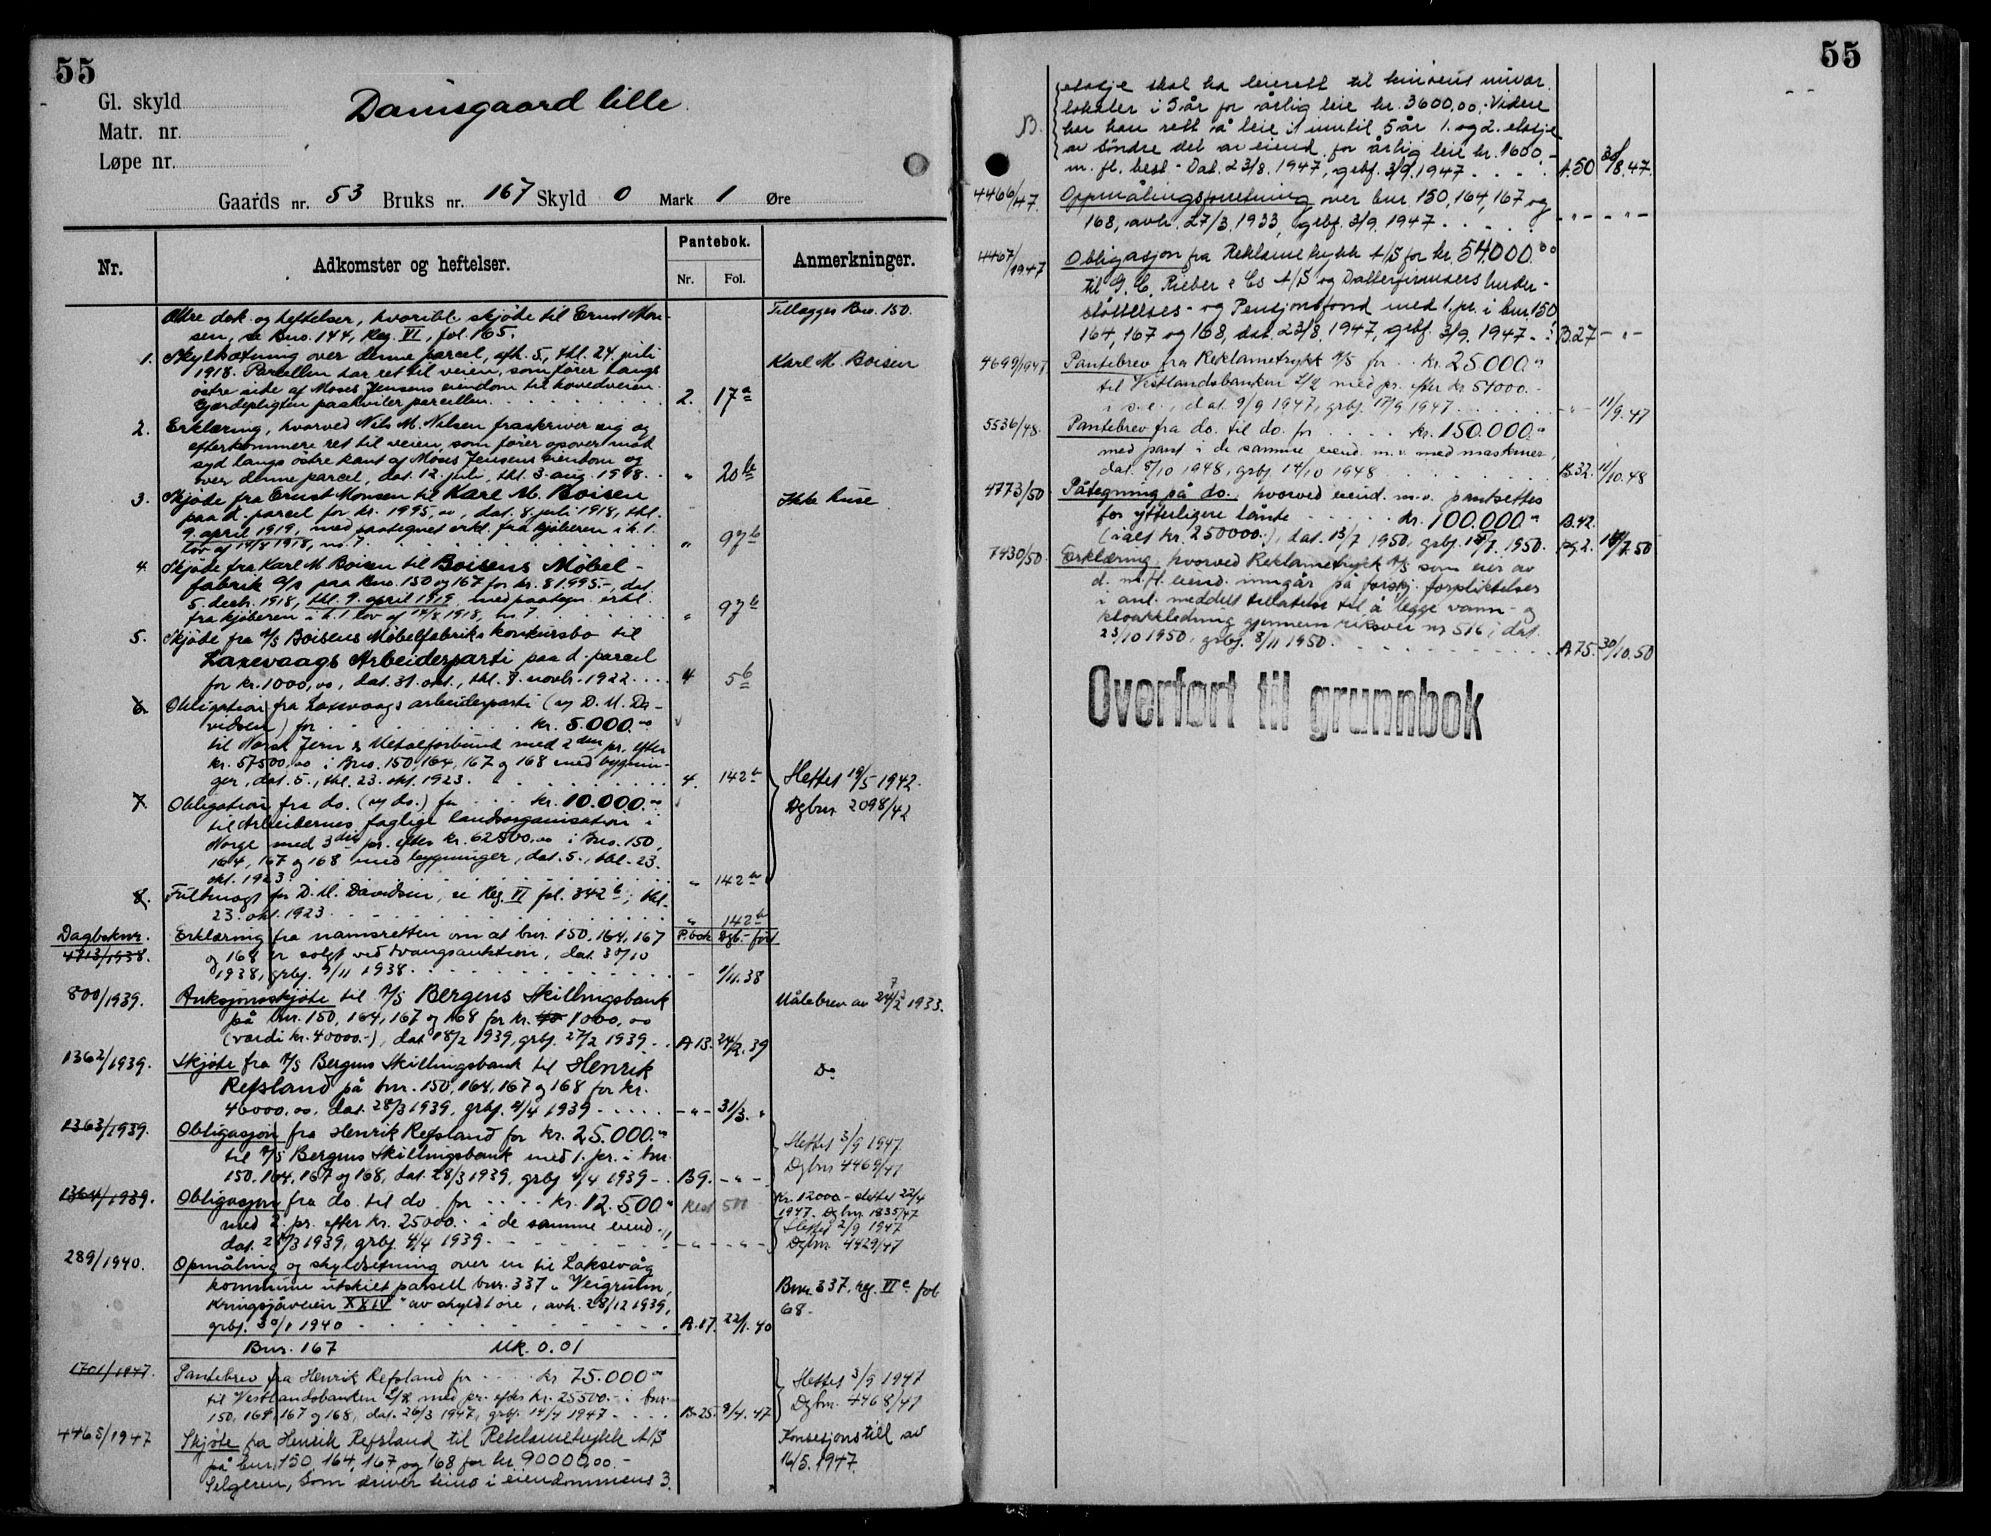 55
Gl. skyld
Matr. nr.
Løpe nr.
Damsgaard lille
Gaards nr. 53 Bruks nr. 167 Skyld 0 Mark 1 Øre
Nr.
Adkomster og heftelser.
Pantebok.
Nr. Fol.
Anmerkninger.
Ældre dok. og heftelser, hvoribl. skjøde til Ernst Mon-
sen, se Bno. 144, Reg. VI, fol. 165.
Tillægges Bno. 150.
1. Skyldsætning over denne parcel, afh. 5, thl. 24. juli
1918. Parcellen har ret til veien, som fører langs
østre side af Moses Jensens eiendom til hovedveien.
Gjerdepligten paahviler parcellen. 2. 17a
Karl M. Boisen
2. Erklæring, hvorved Nils M. Nilsen fraskriver sig og
efterkommere ret til veien, som fører opover mod
syd langs østre kant af Moses Jensens eiendom og
over denne parcel, dat. 12. juli, thl. 3. aug. 1918. " 20b
3. Skjøde fra Ernst Monsen til Karl M. Boisen
paa d. parcel for kr. 1995,00, dat. 8. juli 1918, thl.
9. april 1919, med paategnet erkl. fra kjøberen i h. t.
lov af 14/8 1918, no. 7. " 97b
Ikke huse
4. Skjøde fra Karl M. Boisen til Boisens Møbel-
fabrik A/S paa Bno. 150 og 167 for kr. 81.995.-, dat.
5. decbr. 1918, thl. 9. april 1919 med paategn. erkl.
fra kjøberen i h. t. lov af 14/8 1918, no. 7. " 97b
5. Skjøde fra A/S Boisens Møbelfabriks konkursbo til
Laxevaags Arbeiderparti paa d. parcel
for kr. 1000,00, dat. 31. okt., thl. 7. novbr. 1922. 4 5b
6. Obligation fra Laxevaags arbeiderparti (og D. M. Da-
vidsen) for kr. 5.000.00
til Norsk Jern & Metalforbund med 2den pr. efter
kr. 57500,00 i Bno. 150, 164, 167 og 168 med bygnin-
ger, dat. 5., thl. 23. okt. 1923. 4. 142b
Slettet 19/5 1942.
Dgbnr 2098/42
7. Obligation fra do. (og do.) for kr. 10.000.00
til Arbeidernes faglige landsorganisation i
Norge med 3die pr. efter kr. 62500,00 i Bno. 150,
164, 167 og 168 med bygninger, dat. 5., thl. 23.
okt. 1923. " 142b
8. Fuldmagt for D. M. Davidsen, se Reg. VI fol. 342b, thl.
23. okt. 1923. " 142b
Dagboknr.
P.bok Dgb.-ført
4913/1938. Erklæring fra namsretten om at bnr. 150, 164, 167
og 168 er solgt ved tvangsauktion, dat. 30/10
1938, grbf. 9/11 1938. - 1/11.38
800/1939. Auksjonsskjøte til A/S Bergens Skillingsbank
på bnr. 150, 164, 167 og 168 for kr. 1000,00
(verdi kr. 40000.-), dat. 18/2 1939, grbf. 27/2 1939. A 13. 24/2. 39
Målebrev av 27/3 1933.
1362/1939. Skjøte fra A/S Bergens Skillingsbank til Henrik
Refsland på bnr. 150, 164, 167 og 168 for kr.
40000,00, dat. 28/3 1939, grbf. 4/4 1939 - " - 31/3. "
Do
1363/1939. Obligasjon fra Henrik Refsland for kr. 25.000.00
til A/S Bergens Skillingsbank med 1. pr. i bnr.
150, 164, 167 og 168, dat. 28/3 1939, grbf. 4/4 1939 - B 9. - " -
Slettet 3/9 1947.
Dgbnr 4469/47
1364/1939. Obligasjon fra do. til do. for kr. 12.500.00 Rest 500
med 2. pr. efter kr. 25000.- i de samme eiend.,
dat. 28/3 1939, grbf. 4/4 1939 - " - - " -
Kr. 12000.- slettet 22/4
1947. Dgbnr. 1835/47
Slettet 2/9 1947
Dgbnr. 4429/47
289/1940. Opmåling og skyldsetning over en til Laksevåg
kommune utskilt parsell bnr. 337 "Veigrunn,
Kringsjåveien XXIV" av skyld 1 øre, avh. 28/12 1939,
grbf. 30/1 1940 A. 17. 22/1. 40
Bnr. 337, reg. VI c fol
68.
Bnr. 167 Mk. 0.01
1701/1947. Pantebrev fra Henrik Refsland for kr 75.000.00
til Vestlandsbanken L/L med pr. efter kr. 25500.- i bnr.
150, 164, 167 og 168, dat. 26/3 1947, grbf. 14/4 1947 B. 25. 9/4. 47
Slettet 3/9 1947
Dgbnr. 4468/47
4465/1947 Skjøte fra Henrik Refsland til Reklametrykk A/S
på bnr. 150, 164, 167 og 168 for kr. 90000,00.-
Selgeren, som driver kino i eiendommens 3.
Konsesjonstill. av
16/5. 1947.
55
B. etasje skal ha leierett til kinoens nuvær.
lokaler i 5 år for årlig leie kr. 3600,00. Videre
har han rett å leie i inntil 5 år 1. og 2. etasje
av søndre del av eiend. for årlig leie kr. 1600.-
m. fl. best.- Dat. 23/8. 1947, grbf. 3/9. 1947 A. 50 30/8. 47.
4466/47. Oppmålingsforretning over bnr. 150, 164, 167 og
168, avh. 27/3. 1933, grbf. 3/9. 1947 - " - - " -
4467/1947 Obligasjon fra Reklametrykk A/S for kr. 54.000.00
til G. C. Rieber & Co A/S og Datterfirmaers Under-
støttelses- og Pensjonsfond med 1. pr. i bnr. 150
164, 167 og 168, dat. 23/8. 1947, grbf. 3/9. 1947 B. 27 - " -
4699/1947 Pantebrev fra Reklametrykk A/S for kr. 25.000.00
til Vestlandsbanken L/L med pr. efter kr. 54000.-
i s. e., dat. 9/9 1947, grbf. 17/9 1947 - " - 11/9. 47
5536/48. Pantebrev fra do. til do. for kr. 150.000.00
med pant i de samme eiend. m. v. med maskiner,
dat. 5/10 1948, grbf. 14/10 1948 B. 32. 11/10. 48
4773/50 Påtegning på do. hvorved eiend. m. v. pantsettes
for ytterligere lånte kr. 100.000.00 B. 42.
(i alt kr. 250000.-), dat. 13/7 1950, grbf. 15/7. 1950. 14/7. 50
7430/50 Erklæring hvorved Reklametrykk A/S som eier av
d. m. fl. eiend. inngår på forskj. forpliktelser
i anl. meddelt tillatelse til å legge vann- og
kloakkledning gjennem riksvei nr 516, dat.
23/10 1950, grbf. 8/11 1950. A 75. 30/10. 50
Overført til grunnbok